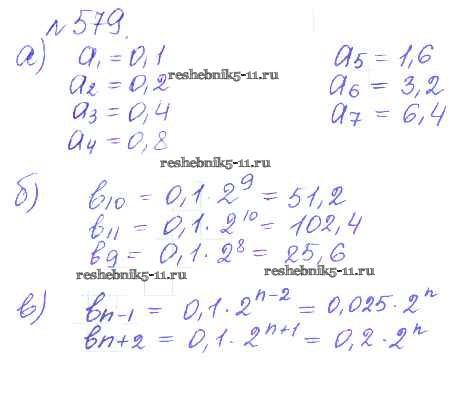 №579.
а) a₁ = 0,1
a₂ = 0,2
a₃ = 0,4
a₄ = 0,8
a₅ = 1,6
a₆ = 3,2
a₇ = 6,4
reshebnik5-11.ru
reshebnik5-11.ru
б) в₁₀ = 0,1·2⁹ = 51,2
в₁₁ = 0,1·2¹⁰ = 102,4
в₉ = 0,1·2⁸ = 25,6
reshebnik5-11.ru reshebnik5-11.ru
в) вₙ₋₁ = 0,1·2ⁿ⁻² = 0,025·2ⁿ
вₙ₊₂ = 0,1·2ⁿ⁺¹ = 0,2·2ⁿ